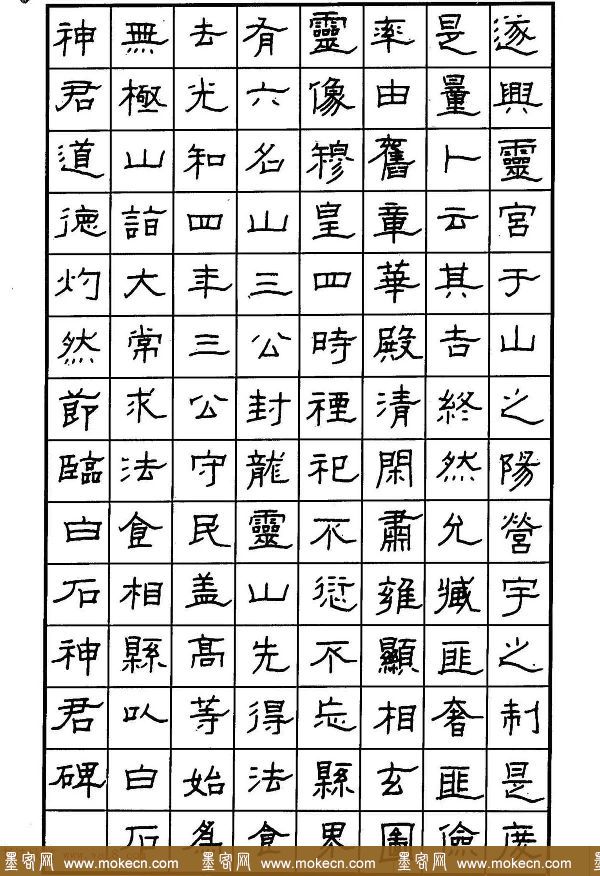 遂興靈宮于山之陽營宇之制是度
是量卜云其吉終然允臧匪奢匪儉
率由舊章華殿清閑肅雍顯相玄圖
靈像穆皇四時禋祀不愆不忘縣界
有六名山三公封龍靈山先得法食
去光和四年三公守民盖高等始為
無極山詣大常求法食相縣以白石
神君道德灼然節臨白石神君碑
墨客网 www.mokecn.com 墨客网 www.mokecn.com 墨客网 www.mokecn.com